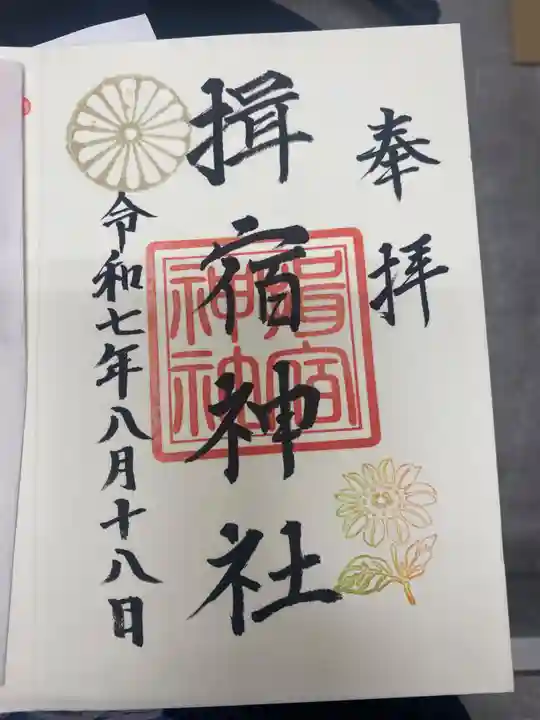 奉拝
揖宿神社
令和七年八月十八日
揖宿
神社